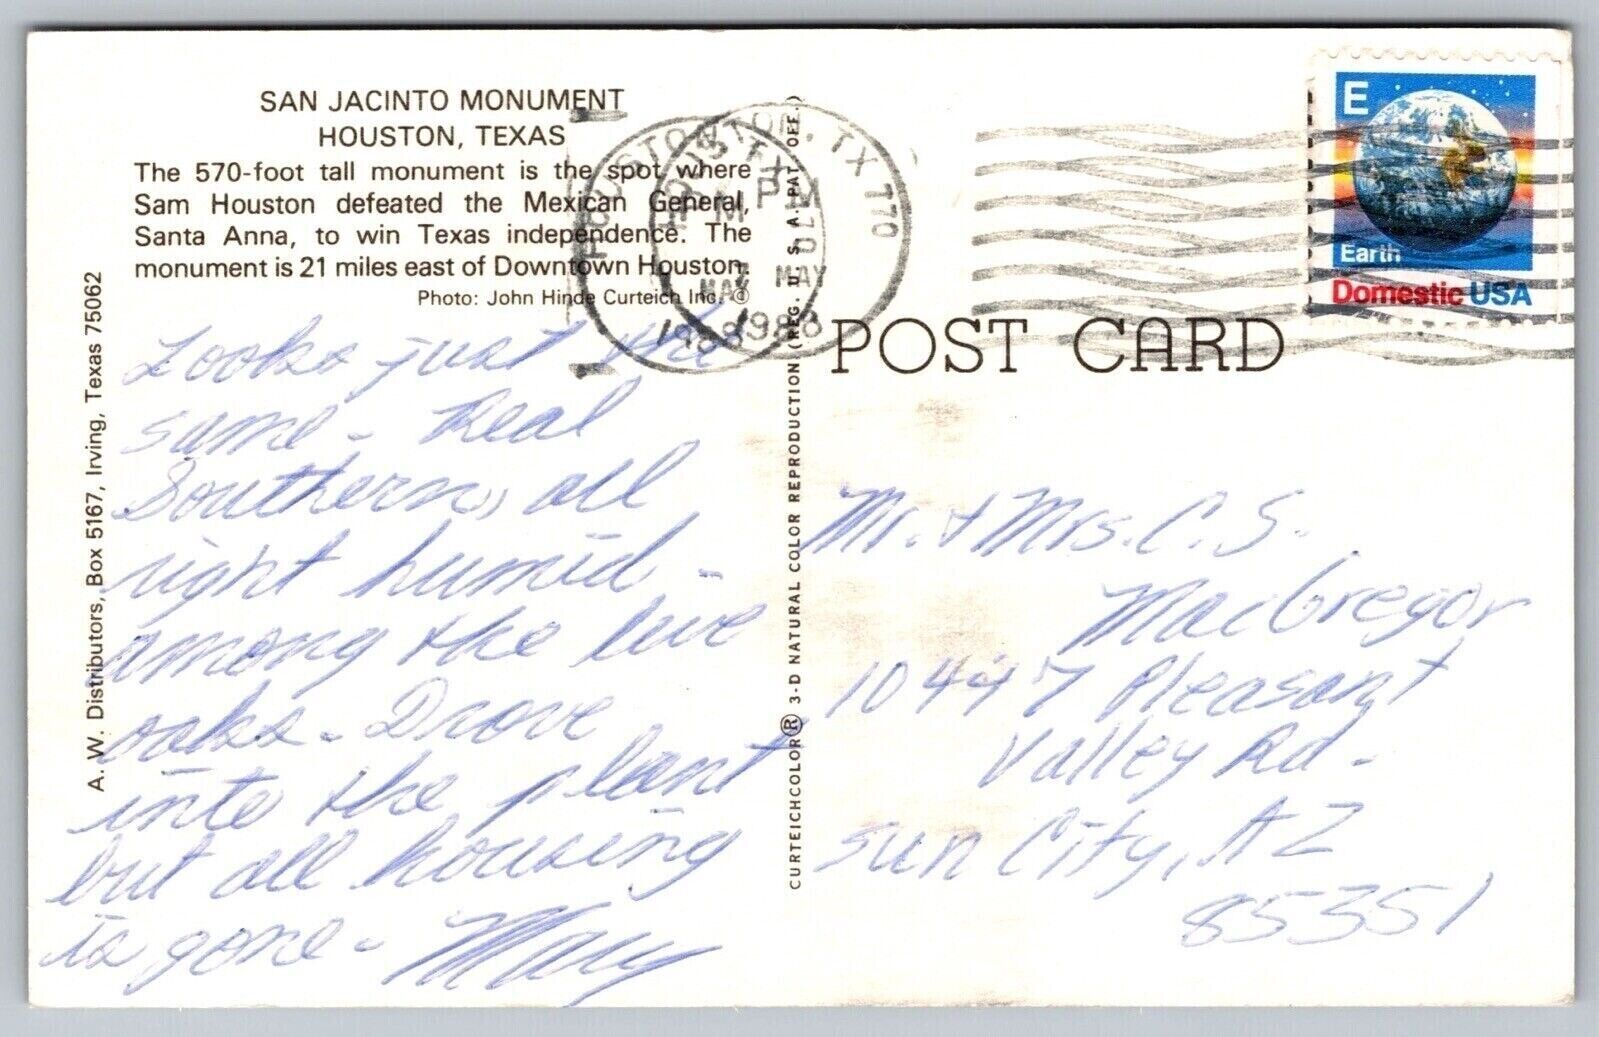 SAN JACINTO MONUMENT
HOUSTON, TEXAS
The 570-foot tall monument is the spot where
Sam Houston defeated the Mexican General,
Santa Anna, to win Texas independence. The
monument is 21 miles east of Downtown Houston.
Photo: John Hinde Curteich Inc. ©
A. W. Distributors, Box 5167, Irving, Texas 75062
Looks just the
same - Real
Southern, all
right humid -
among the live
oaks. Drove
into the plant,
but all housing
is gone - Mary
CURTEICHCOLOR® 3-D NATURAL COLOR REPRODUCTION (REG. U. S. A. PAT. OFF.)
HOUSTON, TX
PM
MAY
1988
HOUSTON, TX 770
PM
MAY
1988
E
Earth
Domestic USA
POST CARD
Mr. & Mrs. C. S.
MacGregor
10447 Pleasant
Valley Rd.
Sun City, AZ
85351